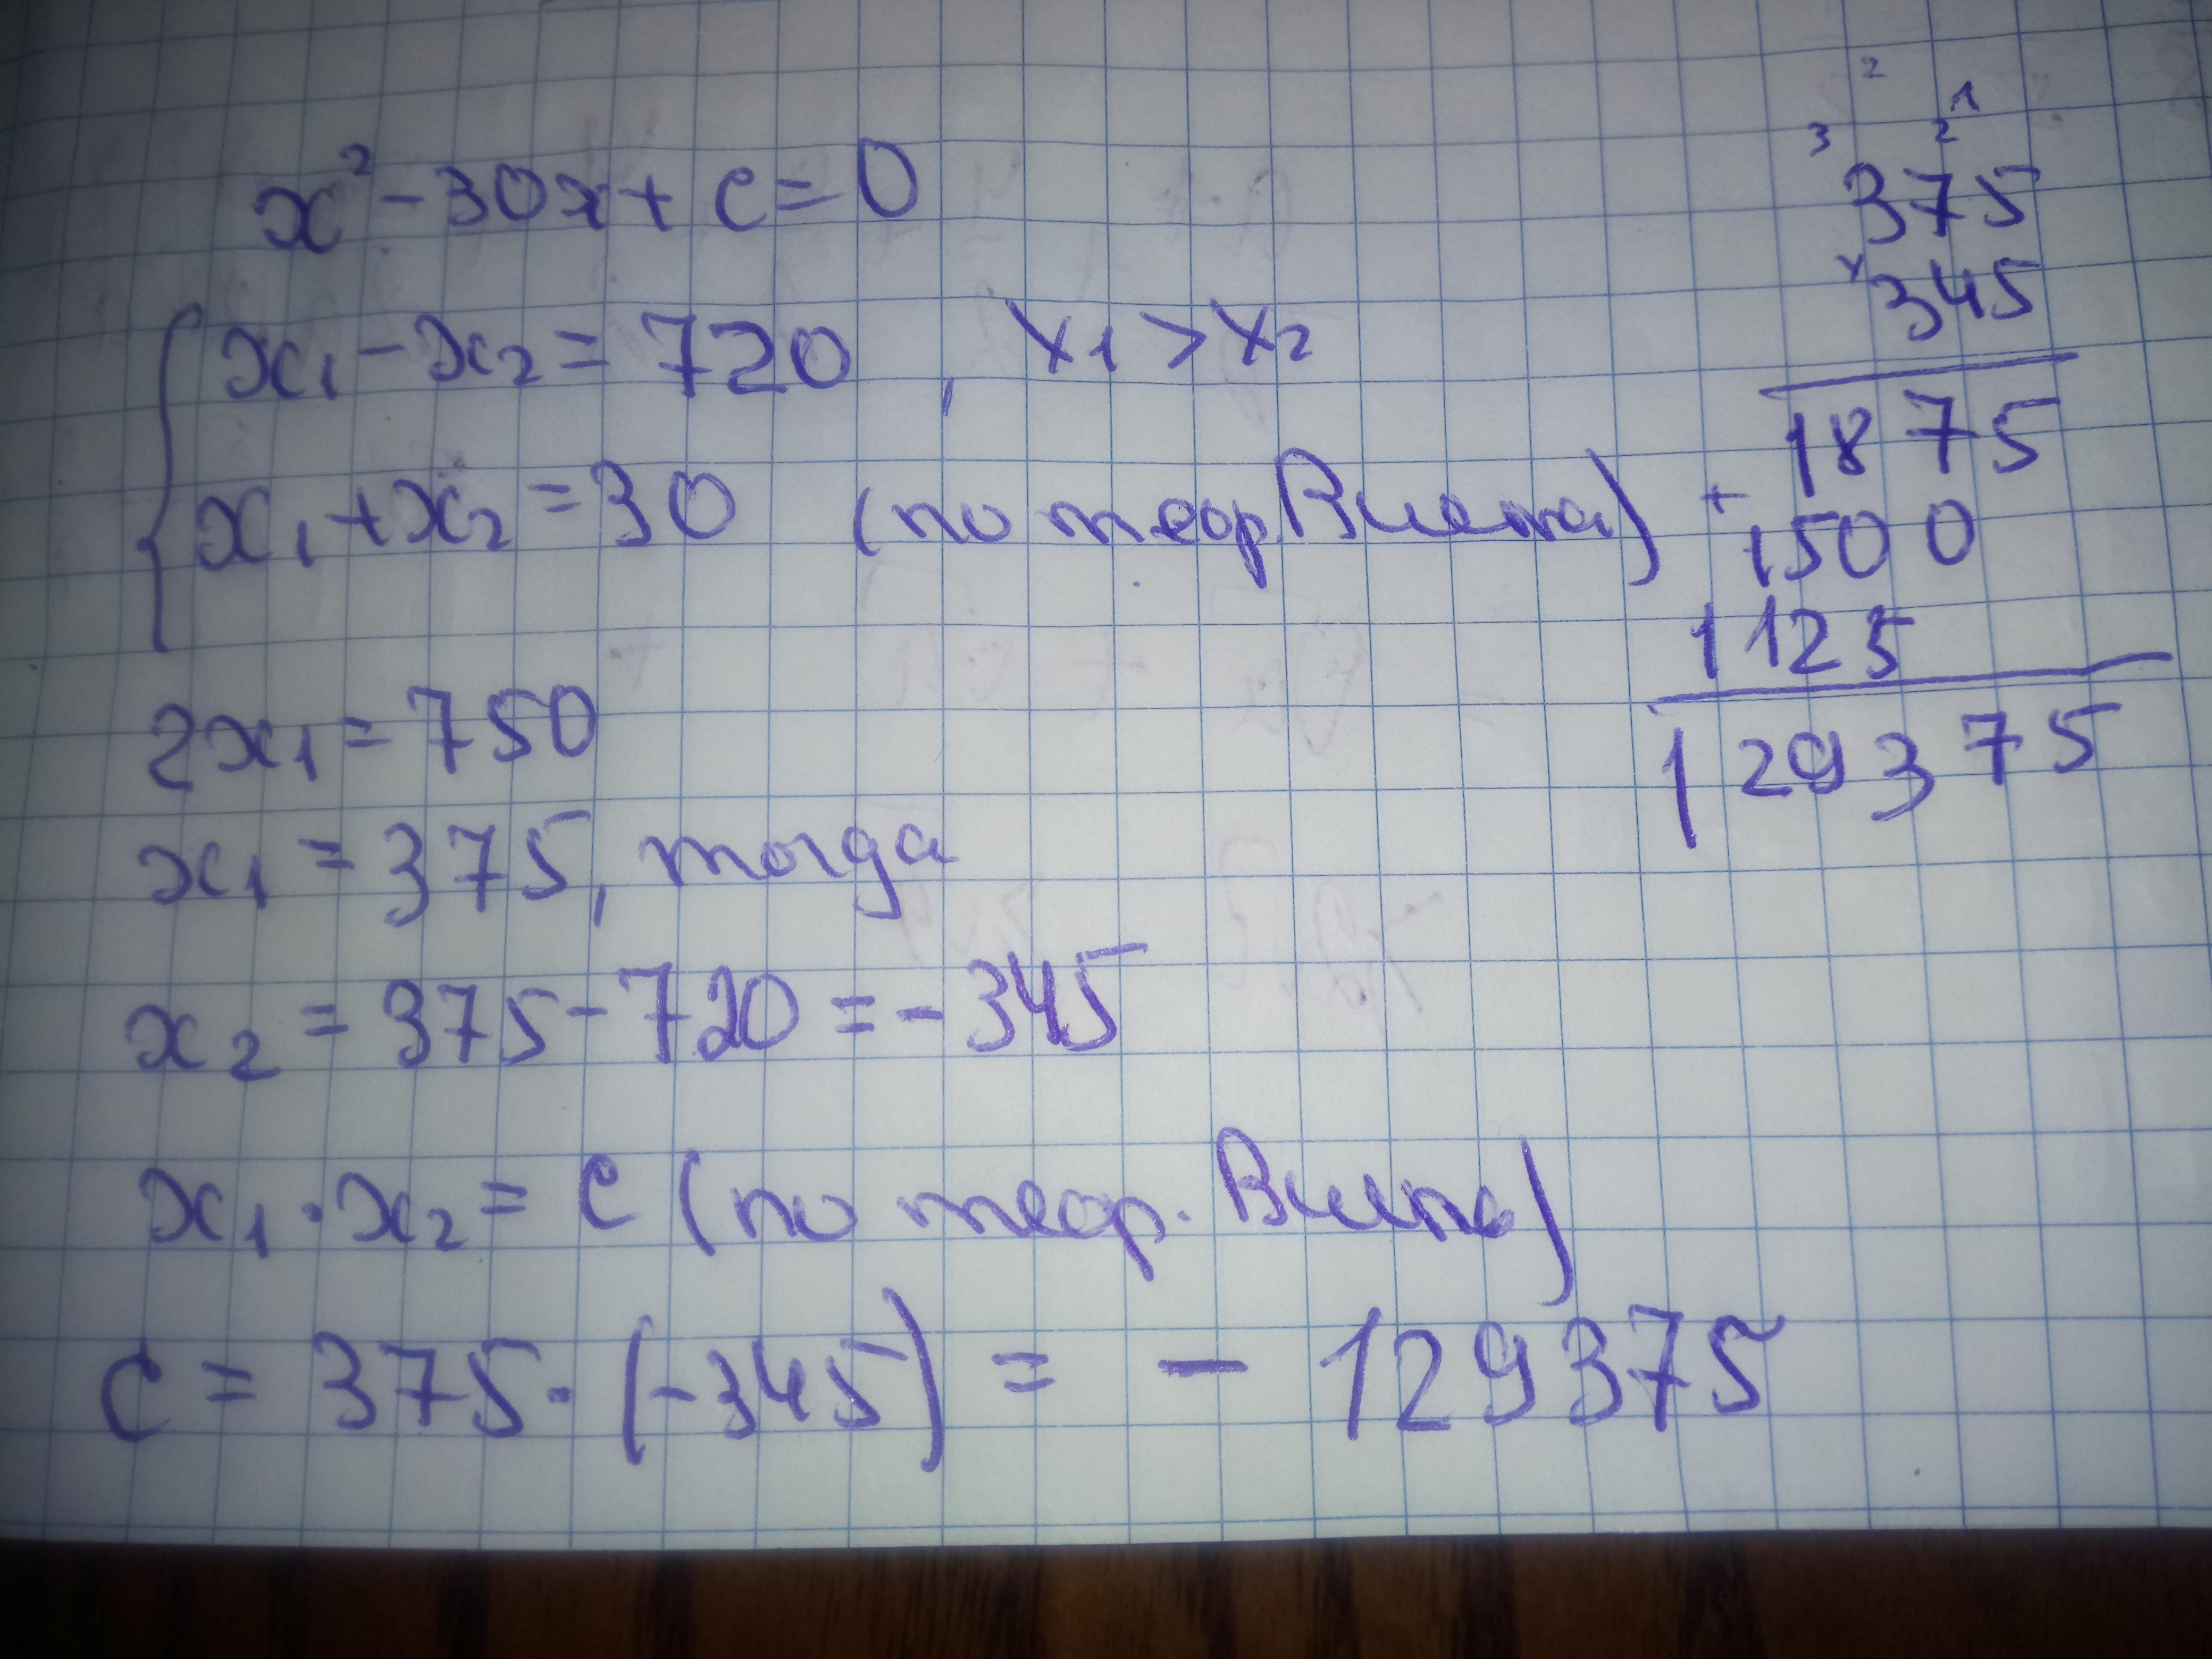 x² - 30x + c = 0
x₁ - x₂ = 720, x₁ > x₂
x₁ + x₂ = 30 (по теор Виета)
2x₁ = 750
x₁ = 375, тогда
x₂ = 375 - 720 = -345
x₁ · x₂ = c (по теор. Виета)
c = 375 · (-345) = - 129375
2
1
3 2
375
×
345
1875
+
1500
1125
129375